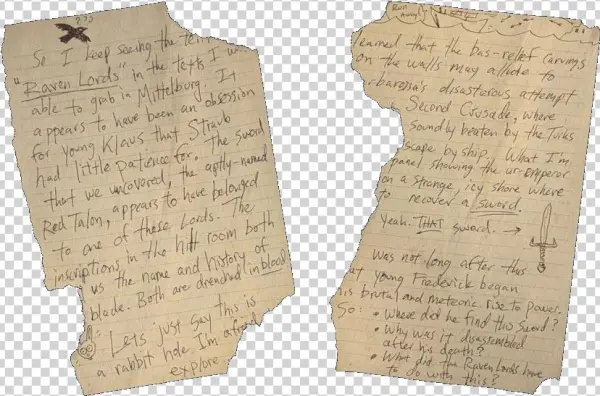 ???
So I keep seeing the
"Raven Lords" in the texts I was
able to grab in Mittelburg. It
appears to have been an obsession
for young Klaus that Straub
had little patience for. The sword
that we uncovered, the aptly-named
Red Talon, appears to have belonged
to one of these Lords. The
inscriptions in the hilt room both
us the name and history of
blade. Both are drenched in blood
Lets just say this is
a rabbit hole I'm afraid
explore.
Run
Away!
earned that the bas-relief carvings
on the walls may allude to
barossa's disastrous attempt
Second Crusade, where
soundly beaten by the Turks
scape by ship. What I'm
panel showing the ur-emperor
on a strange, icy shore where
to recover a sword.
Yeah. THAT sword. →
was not long after this
at young Frederick began
his brutal and meteoric rise to power.
So: • Where did he find this sword?
• Why was it disassembled
after his death?
• What did the Raven Lords have
to do with this?